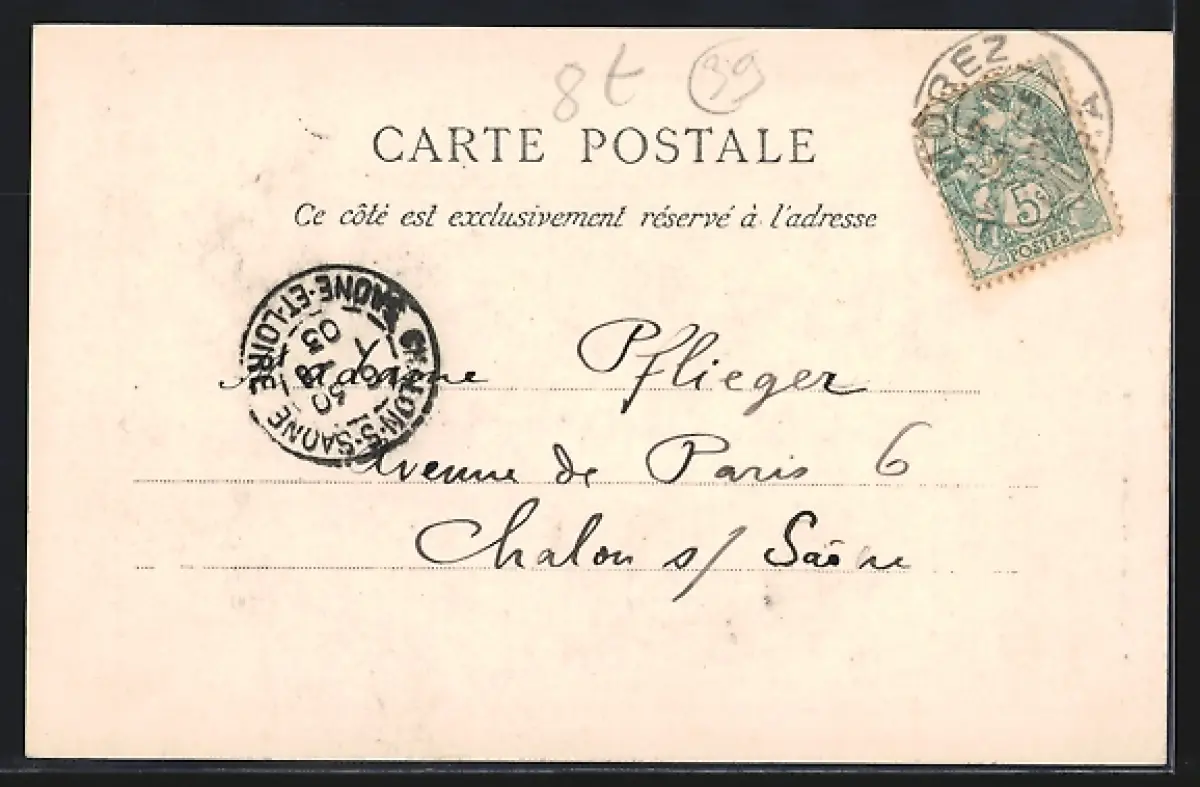 8t 39
CARTE POSTALE
Ce côté est exclusivement réservé à l'adresse
5c
POSTES
CHALON-S-SAONE
SAONE-ET-LOIRE
03
Madame Pflieger
Avenue de Paris 6
Chalon s/ Saône